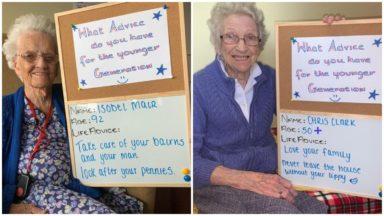 What Advice
do you have
for the younger
Generation
NAME: ISOBEL MAIR
AGE: 92
LIFE ADVICE:
Take care of your bairns
and your man
look after your pennies.
What Advice
do you have
for the younger
Generation
NAME: CHRIS CLARK
AGE: 50+
LIFE ADVICE:
Love your family
never leave the house
without your lippy